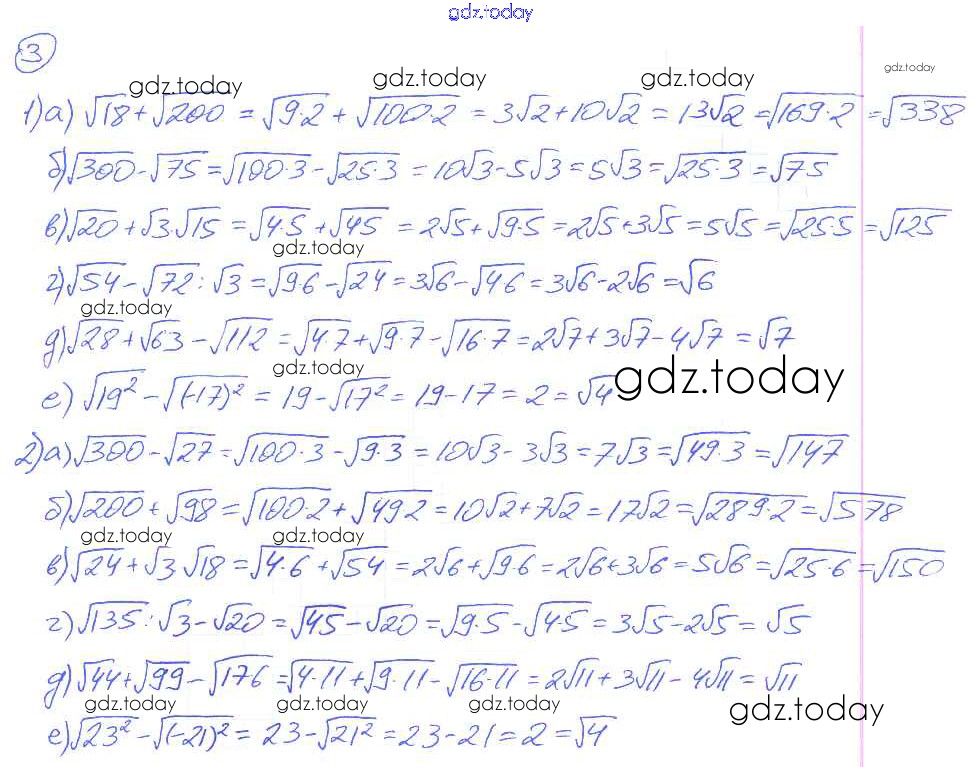 gdz.today
3
gdz.today gdz.today gdz.today gdz.today
1) а) √18 + √200 = √9·2 + √100·2 = 3√2 + 10√2 = 13√2 = √169·2 = √338
б) √300 - √75 = √100·3 - √25·3 = 10√3 - 5√3 = 5√3 = √25·3 = √75
в) √20 + √3·√15 = √4·5 + √45 = 2√5 + √9·5 = 2√5 + 3√5 = 5√5 = √25·5 = √125
gdz.today
г) √54 - √72 : √3 = √9·6 - √24 = 3√6 - √4·6 = 3√6 - 2√6 = √6
gdz.today
д) √28 + √63 - √112 = √4·7 + √9·7 - √16·7 = 2√7 + 3√7 - 4√7 = √7
gdz.today gdz.today
е) √19² - √(-17)² = 19 - √17² = 19 - 17 = 2 = √4
2) а) √300 - √27 = √100·3 - √9·3 = 10√3 - 3√3 = 7√3 = √49·3 = √147
б) √200 + √98 = √100·2 + √49·2 = 10√2 + 7√2 = 17√2 = √289·2 = √578
gdz.today gdz.today
в) √24 + √3·√18 = √4·6 + √54 = 2√6 + √9·6 = 2√6 + 3√6 = 5√6 = √25·6 = √150
г) √135 : √3 - √20 = √45 - √20 = √9·5 - √4·5 = 3√5 - 2√5 = √5
д) √44 + √99 - √176 = √4·11 + √9·11 - √16·11 = 2√11 + 3√11 - 4√11 = √11
gdz.today gdz.today gdz.today gdz.today
е) √23² - √(-21)² = 23 - √21² = 23 - 21 = 2 = √4